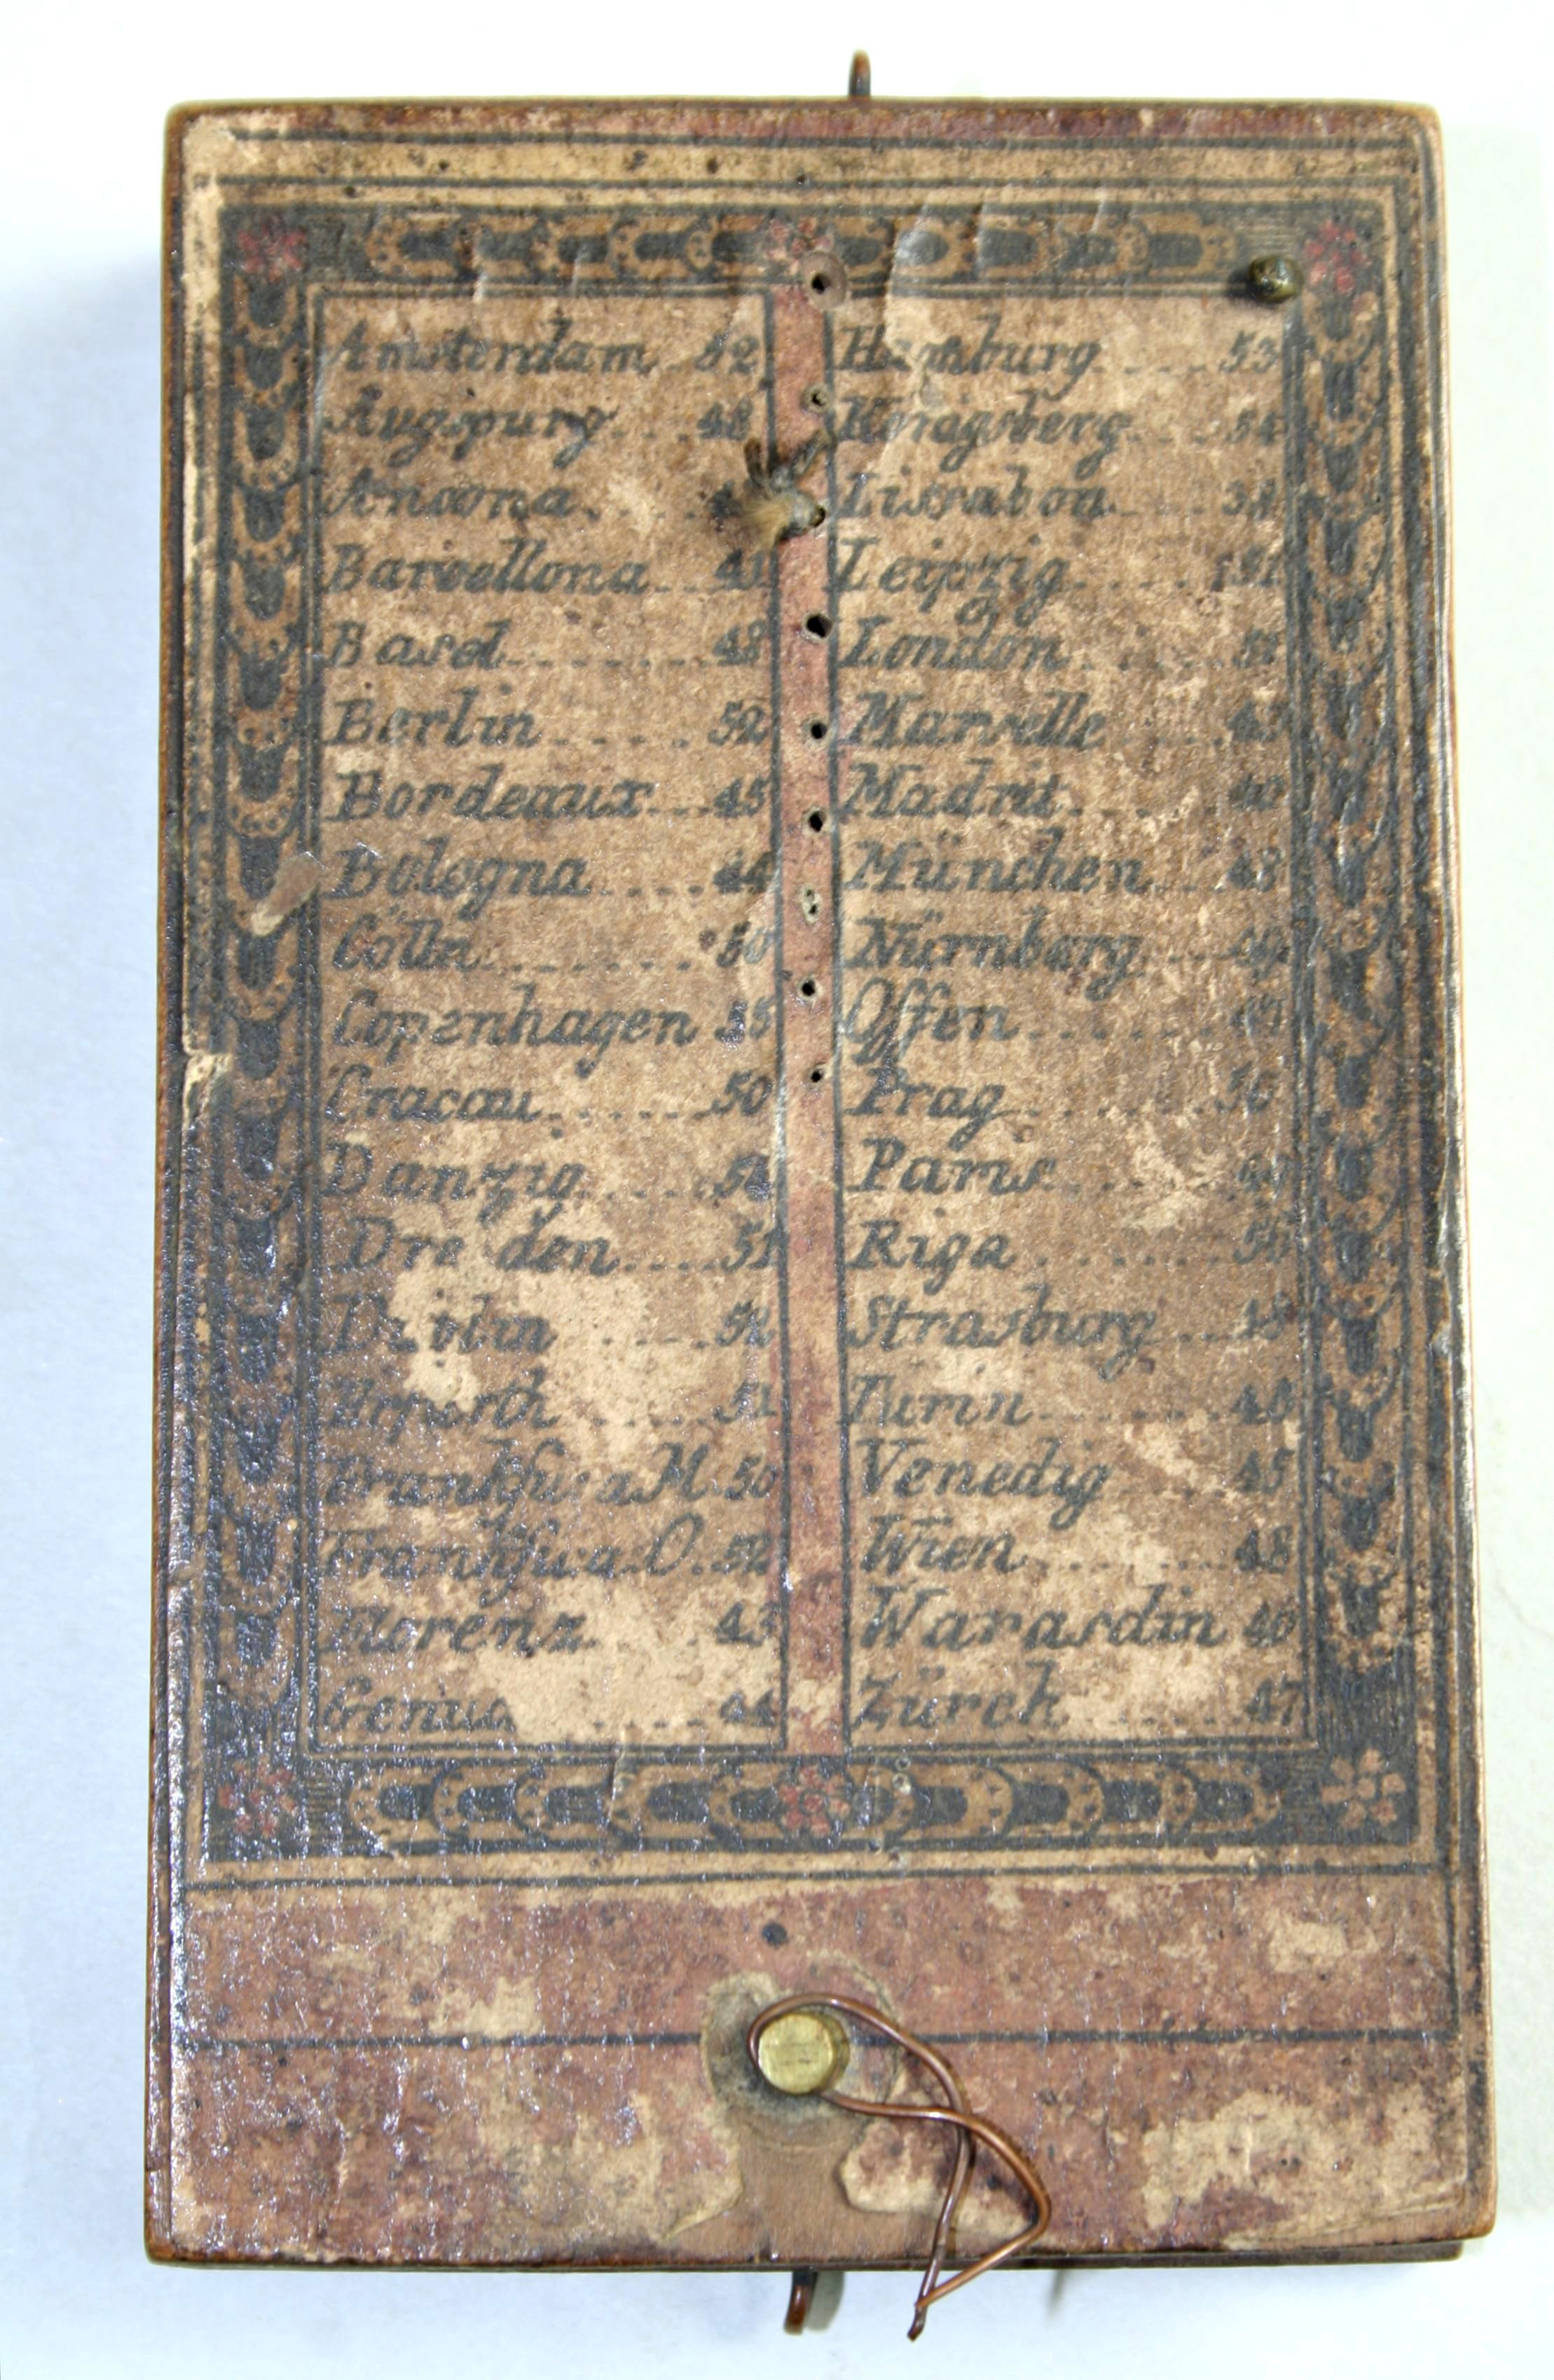 Amsterdam 52
Augspurg 48
Ancona
Barcellona 41
Basel 48
Berlin 52
Bordeaux 45
Bologna 44
Cölln 50
Copenhagen 55
Cracau 50
Danzig 54
Dresden 51
Dublin 52
Erfurth 51
Frankfu: a M. 50
Frankfu: a. O. 52
Florenz 43
Genua 44
Hamburg 53
Königsberg 54
Lissabon 38
Leipzig 51
London 51
Marselle 43
Madrit 40
München 48
Nürnberg 49
Offen 47
Prag 50
Paris
Riga 56
Strasburg 48
Turin
Venedig 45
Wien 48
Warasdin 46
Zürch 47